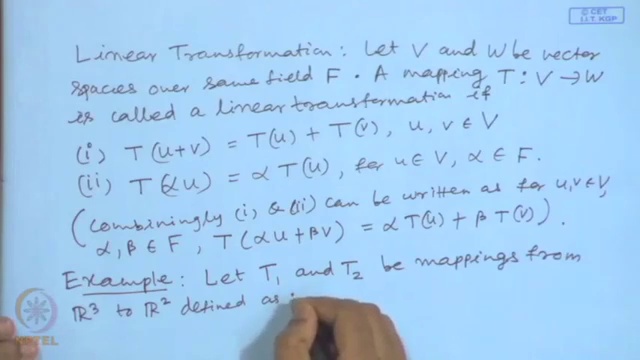 © CET
I.I.T. KGP
Linear Transformation: Let V and W be vector
spaces over same field F. A mapping T: V → W
is called a linear transformation if
(i) T(u+v) = T(u) + T(v), u, v ∈ V
(ii) T(αu) = α T(u), for u ∈ V, α ∈ F.
(Combiningly (i) & (ii) can be written as for u, v ∈ V,
α, β ∈ F, T(αu + βv) = α T(u) + β T(v)).
Example: Let T₁ and T₂ be mappings from
ℝ³ to ℝ² defined as :